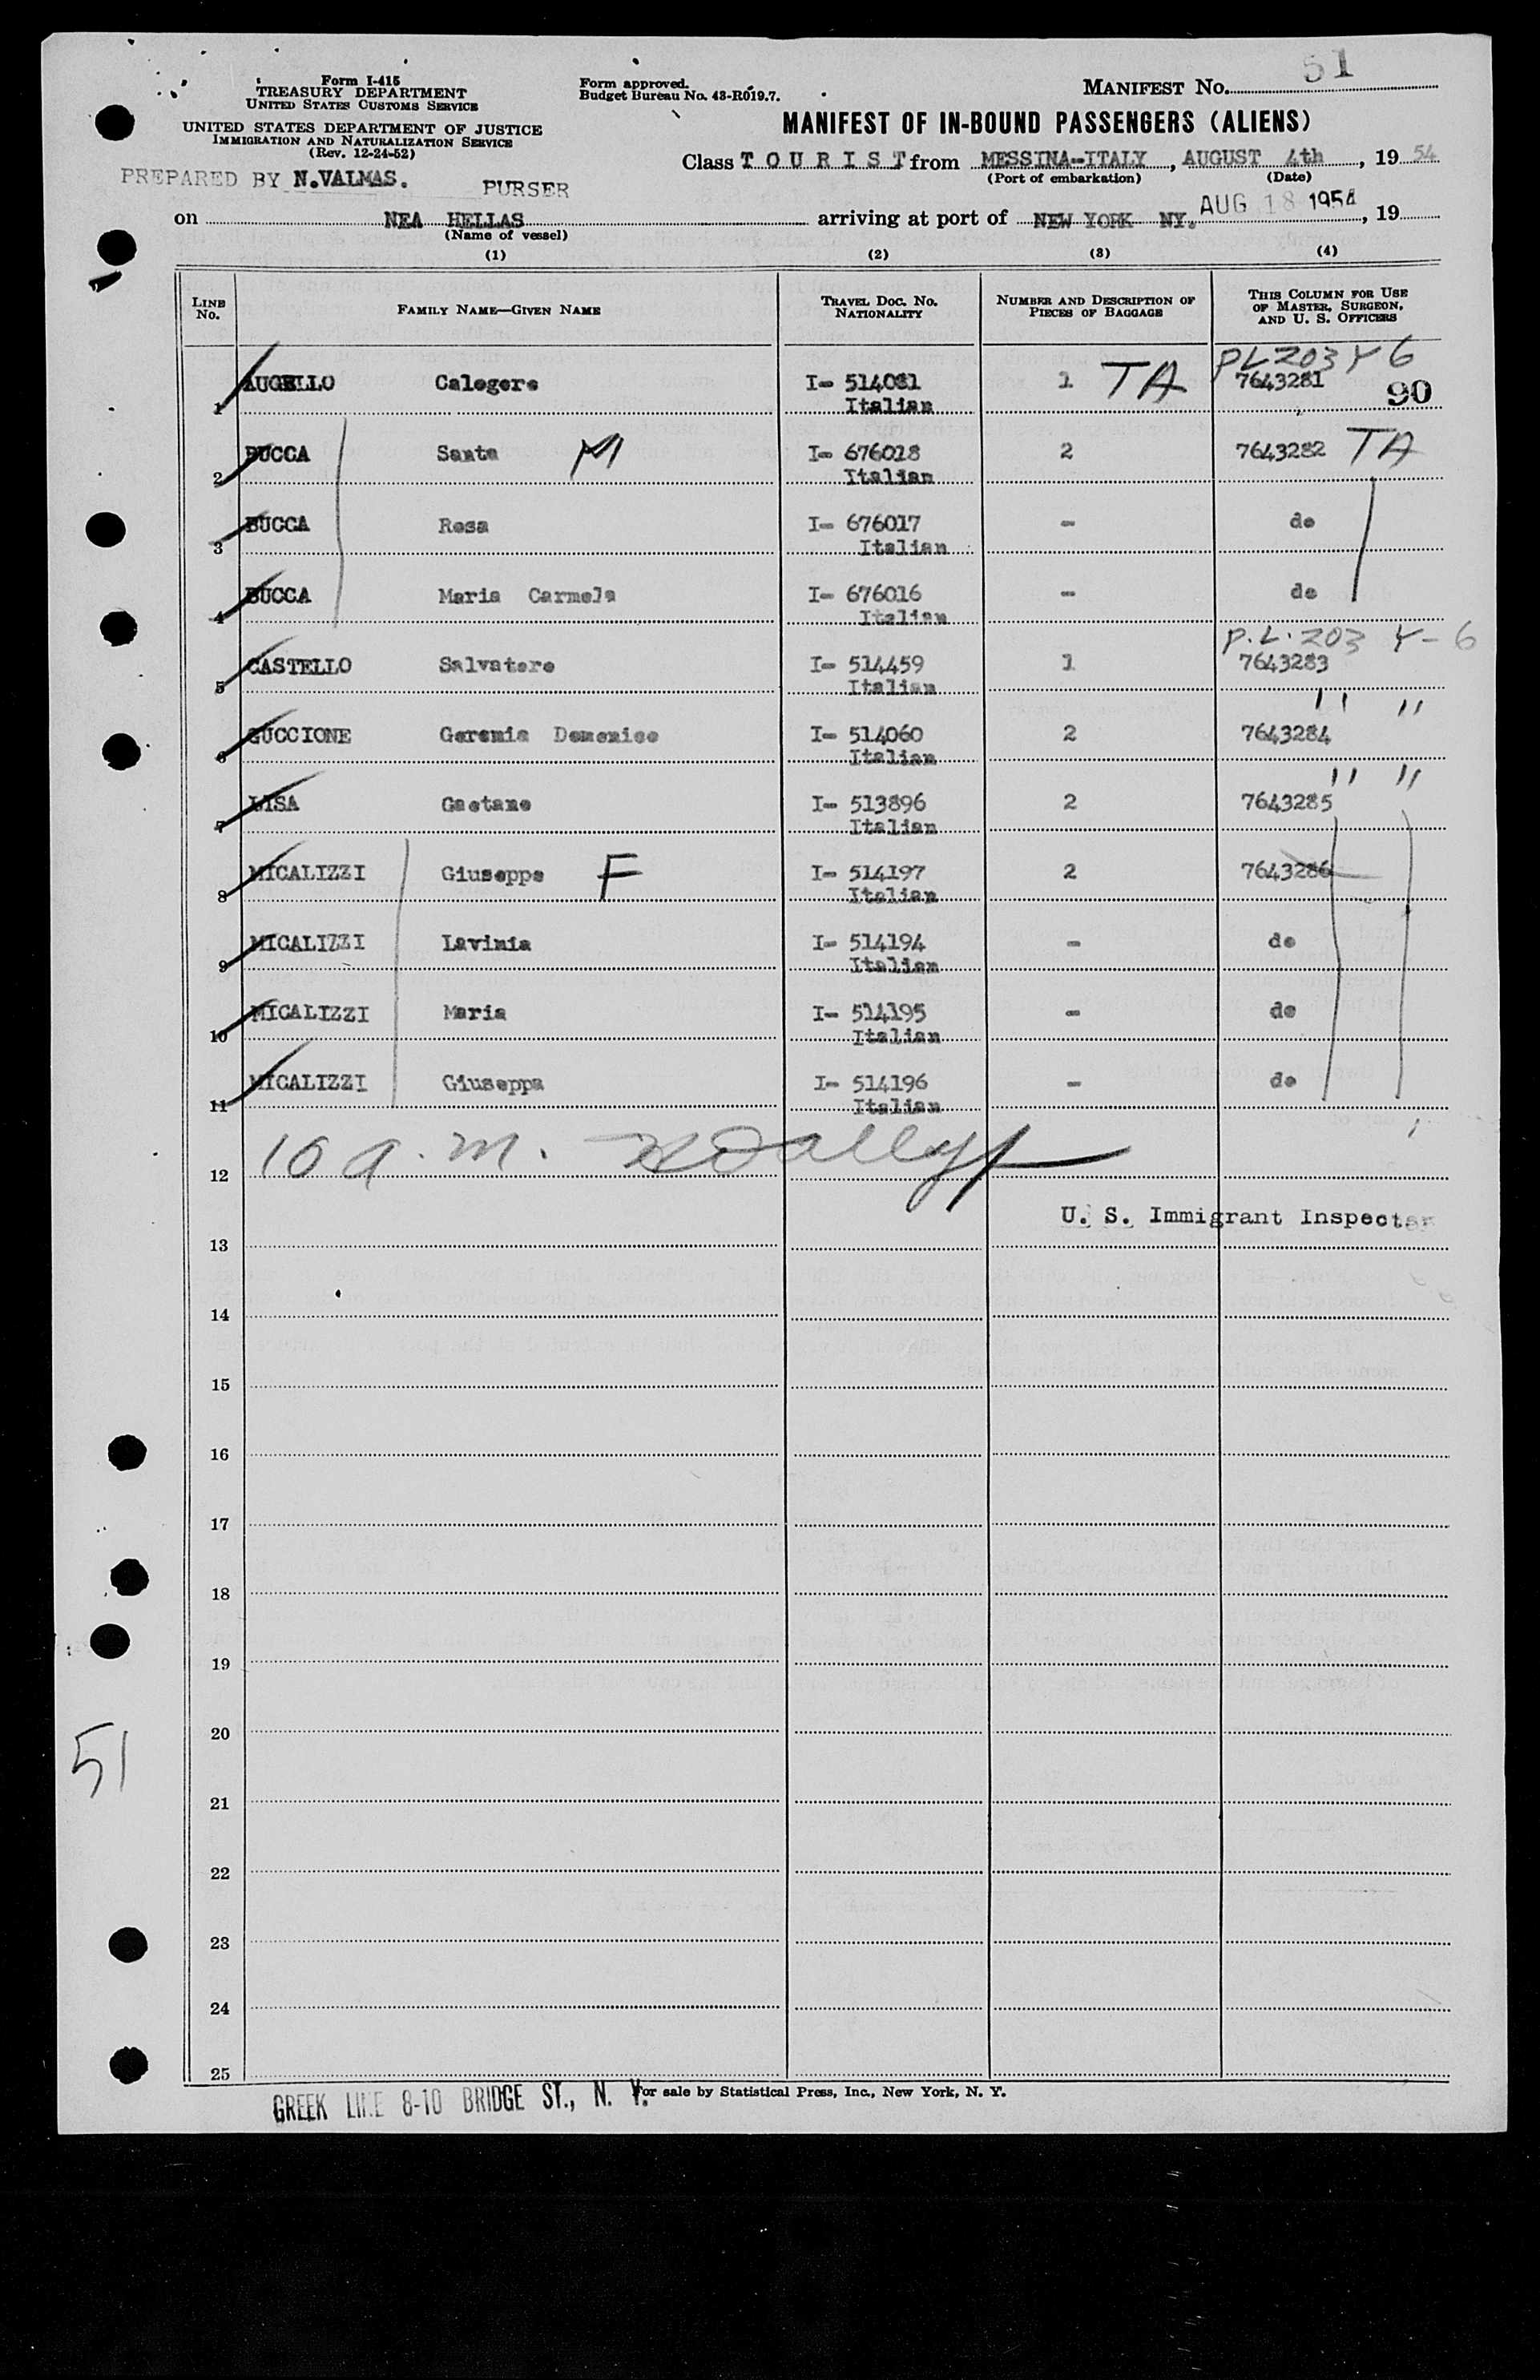 Form I-415
TREASURY DEPARTMENT
UNITED STATES CUSTOMS SERVICE
UNITED STATES DEPARTMENT OF JUSTICE
IMMIGRATION AND NATURALIZATION SERVICE
(Rev. 12-24-52)
Form approved.
Budget Bureau No. 43-R019.7.
MANIFEST No. 51
MANIFEST OF IN-BOUND PASSENGERS (ALIENS)
Class T O U R I S T from MESSINA-ITALY, AUGUST 4th, 19 54
(Port of embarkation) (Date)
PREPARED BY N.VALMAS. PURSER
on NEA HELLAS arriving at port of NEW YORK NY. AUG 18 1954, 19
(Name of vessel)
(1) (2) (3) (4)
LINE No. FAMILY NAME—GIVEN NAME TRAVEL DOC. No. NATIONALITY NUMBER AND DESCRIPTION OF PIECES OF BAGGAGE THIS COLUMN FOR USE OF MASTER, SURGEON, AND U. S. OFFICERS
PL 203 Y 6
1 AUGELLO Calogero I- 514081 1 TA 7643281 90
Italian
2 BUCCA Santa M I- 676018 2 7643282 TA
Italian
3 BUCCA Rosa I- 676017 - do
Italian
4 BUCCA Maria Carmela I- 676016 - do
Italian
P.L. 203 Y-6
5 CASTELLO Salvatore I- 514459 1 7643283
Italian
" "
6 GUCCIONE Geremia Domenico I- 514060 2 7643284
Italian
" "
7 LISA Gaetano I- 513896 2 7643285
Italian
8 MICALIZZI Giuseppe F I- 514197 2 7643286
Italian
9 MICALIZZI Lavinia I- 514194 - do
Italian
10 MICALIZZI Maria I- 514195 - do
Italian
11 MICALIZZI Giuseppa I- 514196 - do
Italian
10 a.m.
12
U. S. Immigrant Inspector
13
14
15
16
17
18
19
20
51
21
22
23
24
25
GREEK LINE 8-10 BRIDGE ST., N. Y.
For sale by Statistical Press, Inc., New York, N. Y.